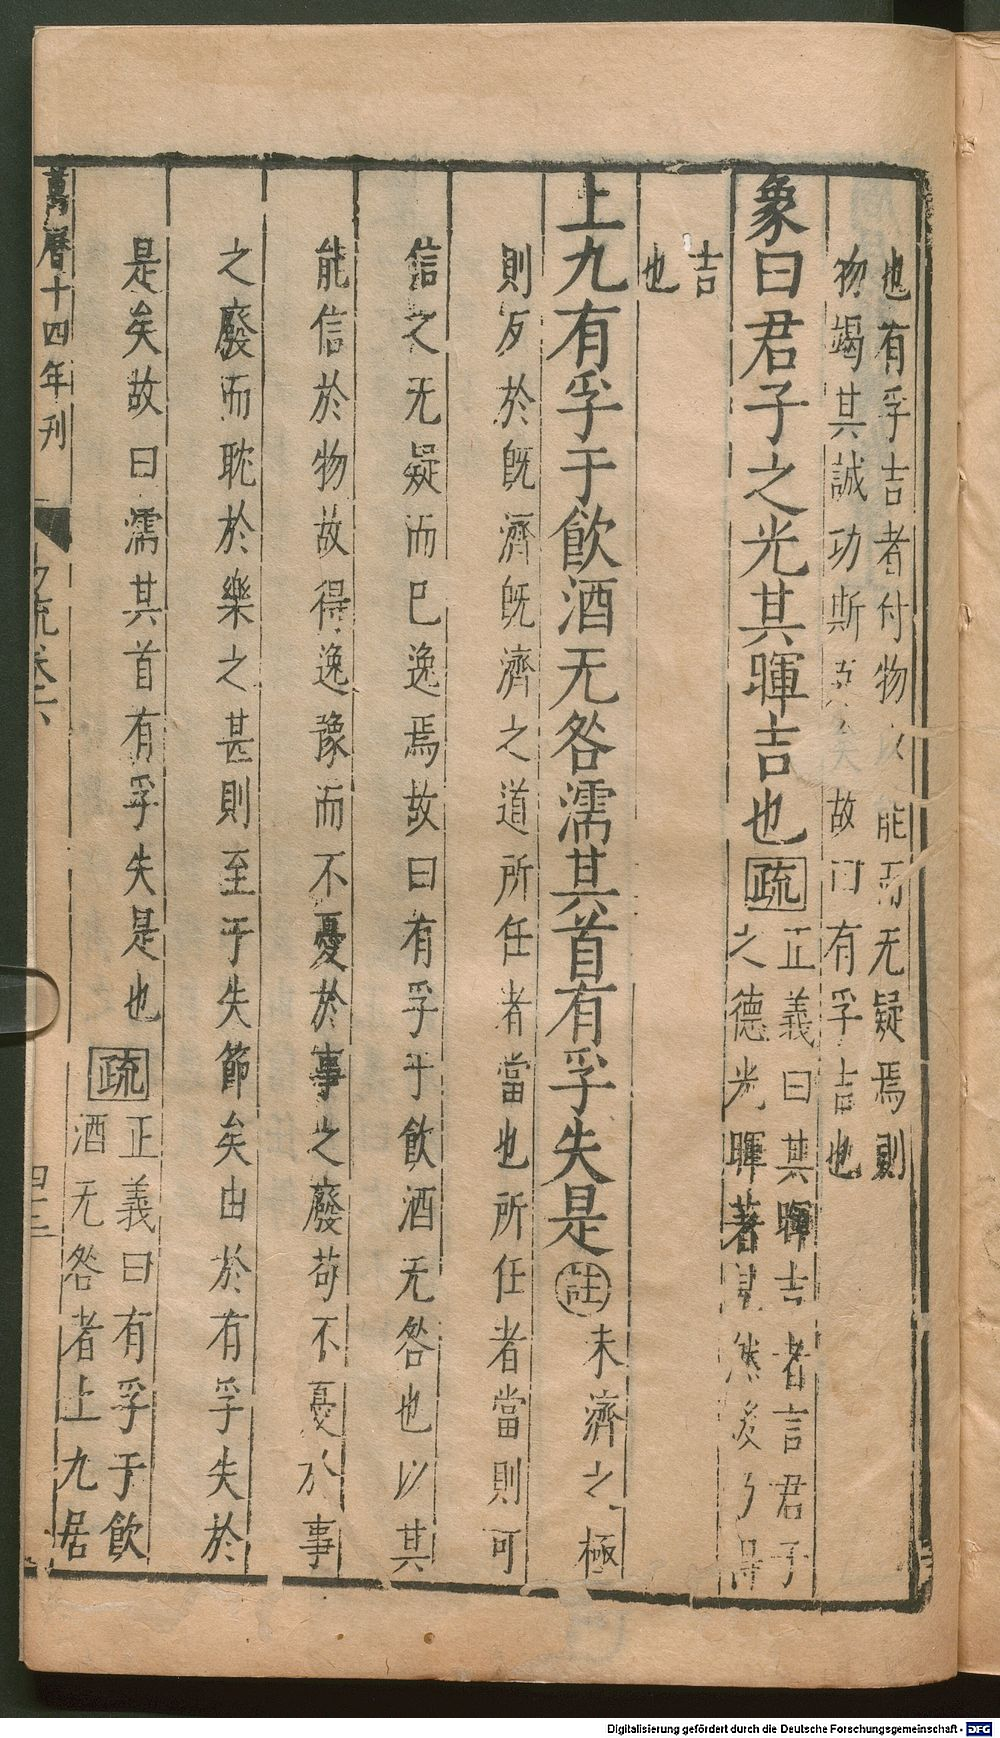 也有孚吉者付物以能而无疑焉則
物竭其誠功斯克矣故曰有孚吉也
象曰君子之光其暉吉也疏
正義曰其暉吉者言君子
之德光暉著見然後乃得
吉
也
上九有孚于飲酒无咎濡其首有孚失是註未濟之極
則反於旣濟旣濟之道所任者當也所任者當則可
信之无疑而巳逸焉故曰有孚于飲酒无咎也以其
能信於物故得逸豫而不憂於事之廢苟不憂於事
之廢而耽於樂之甚則至于失節矣由於有孚失於
是矣故曰濡其首有孚失是也疏
正義曰有孚于飲
酒无咎者上九居
萬曆十四年刊
易疏卷六
四十三
Digitalisierung gefördert durch die Deutsche Forschungsgemeinschaft - DFG